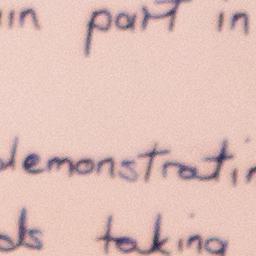 in part in
demonstratin
ds taking